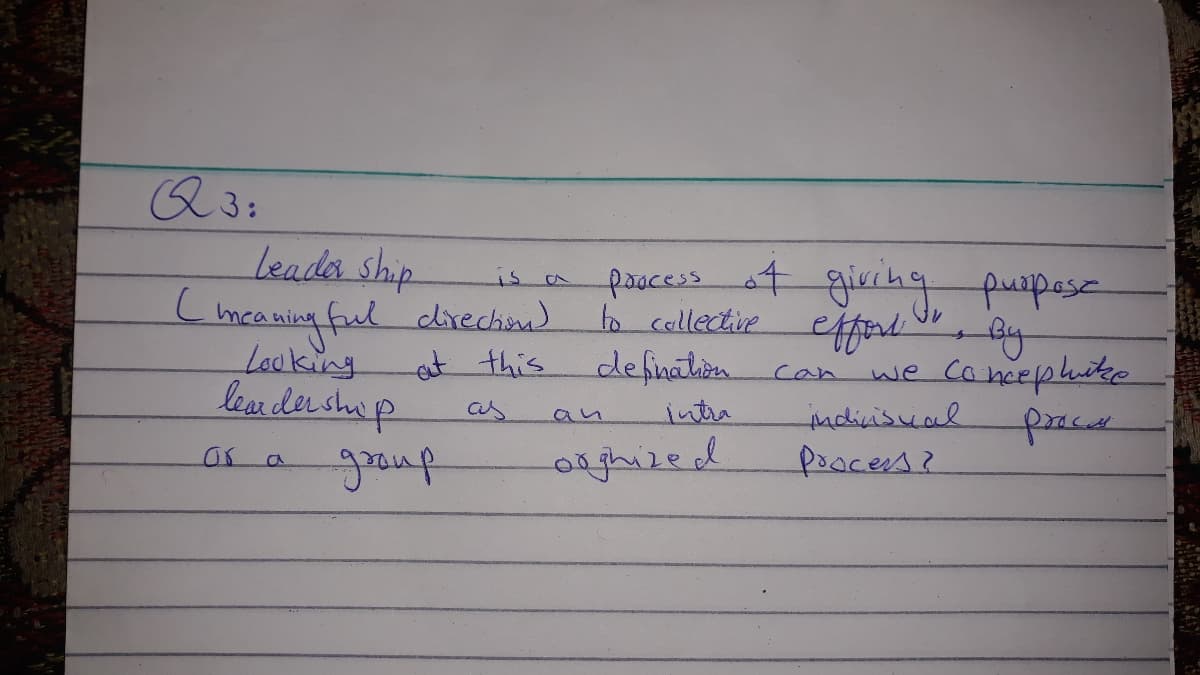 Q3:
Leadership is a process of giving purpose
(meaningful direction) to collective effort", By
Looking at this defination can we Concephitze
leardership as an intra indivisual process
or a group orghized process?